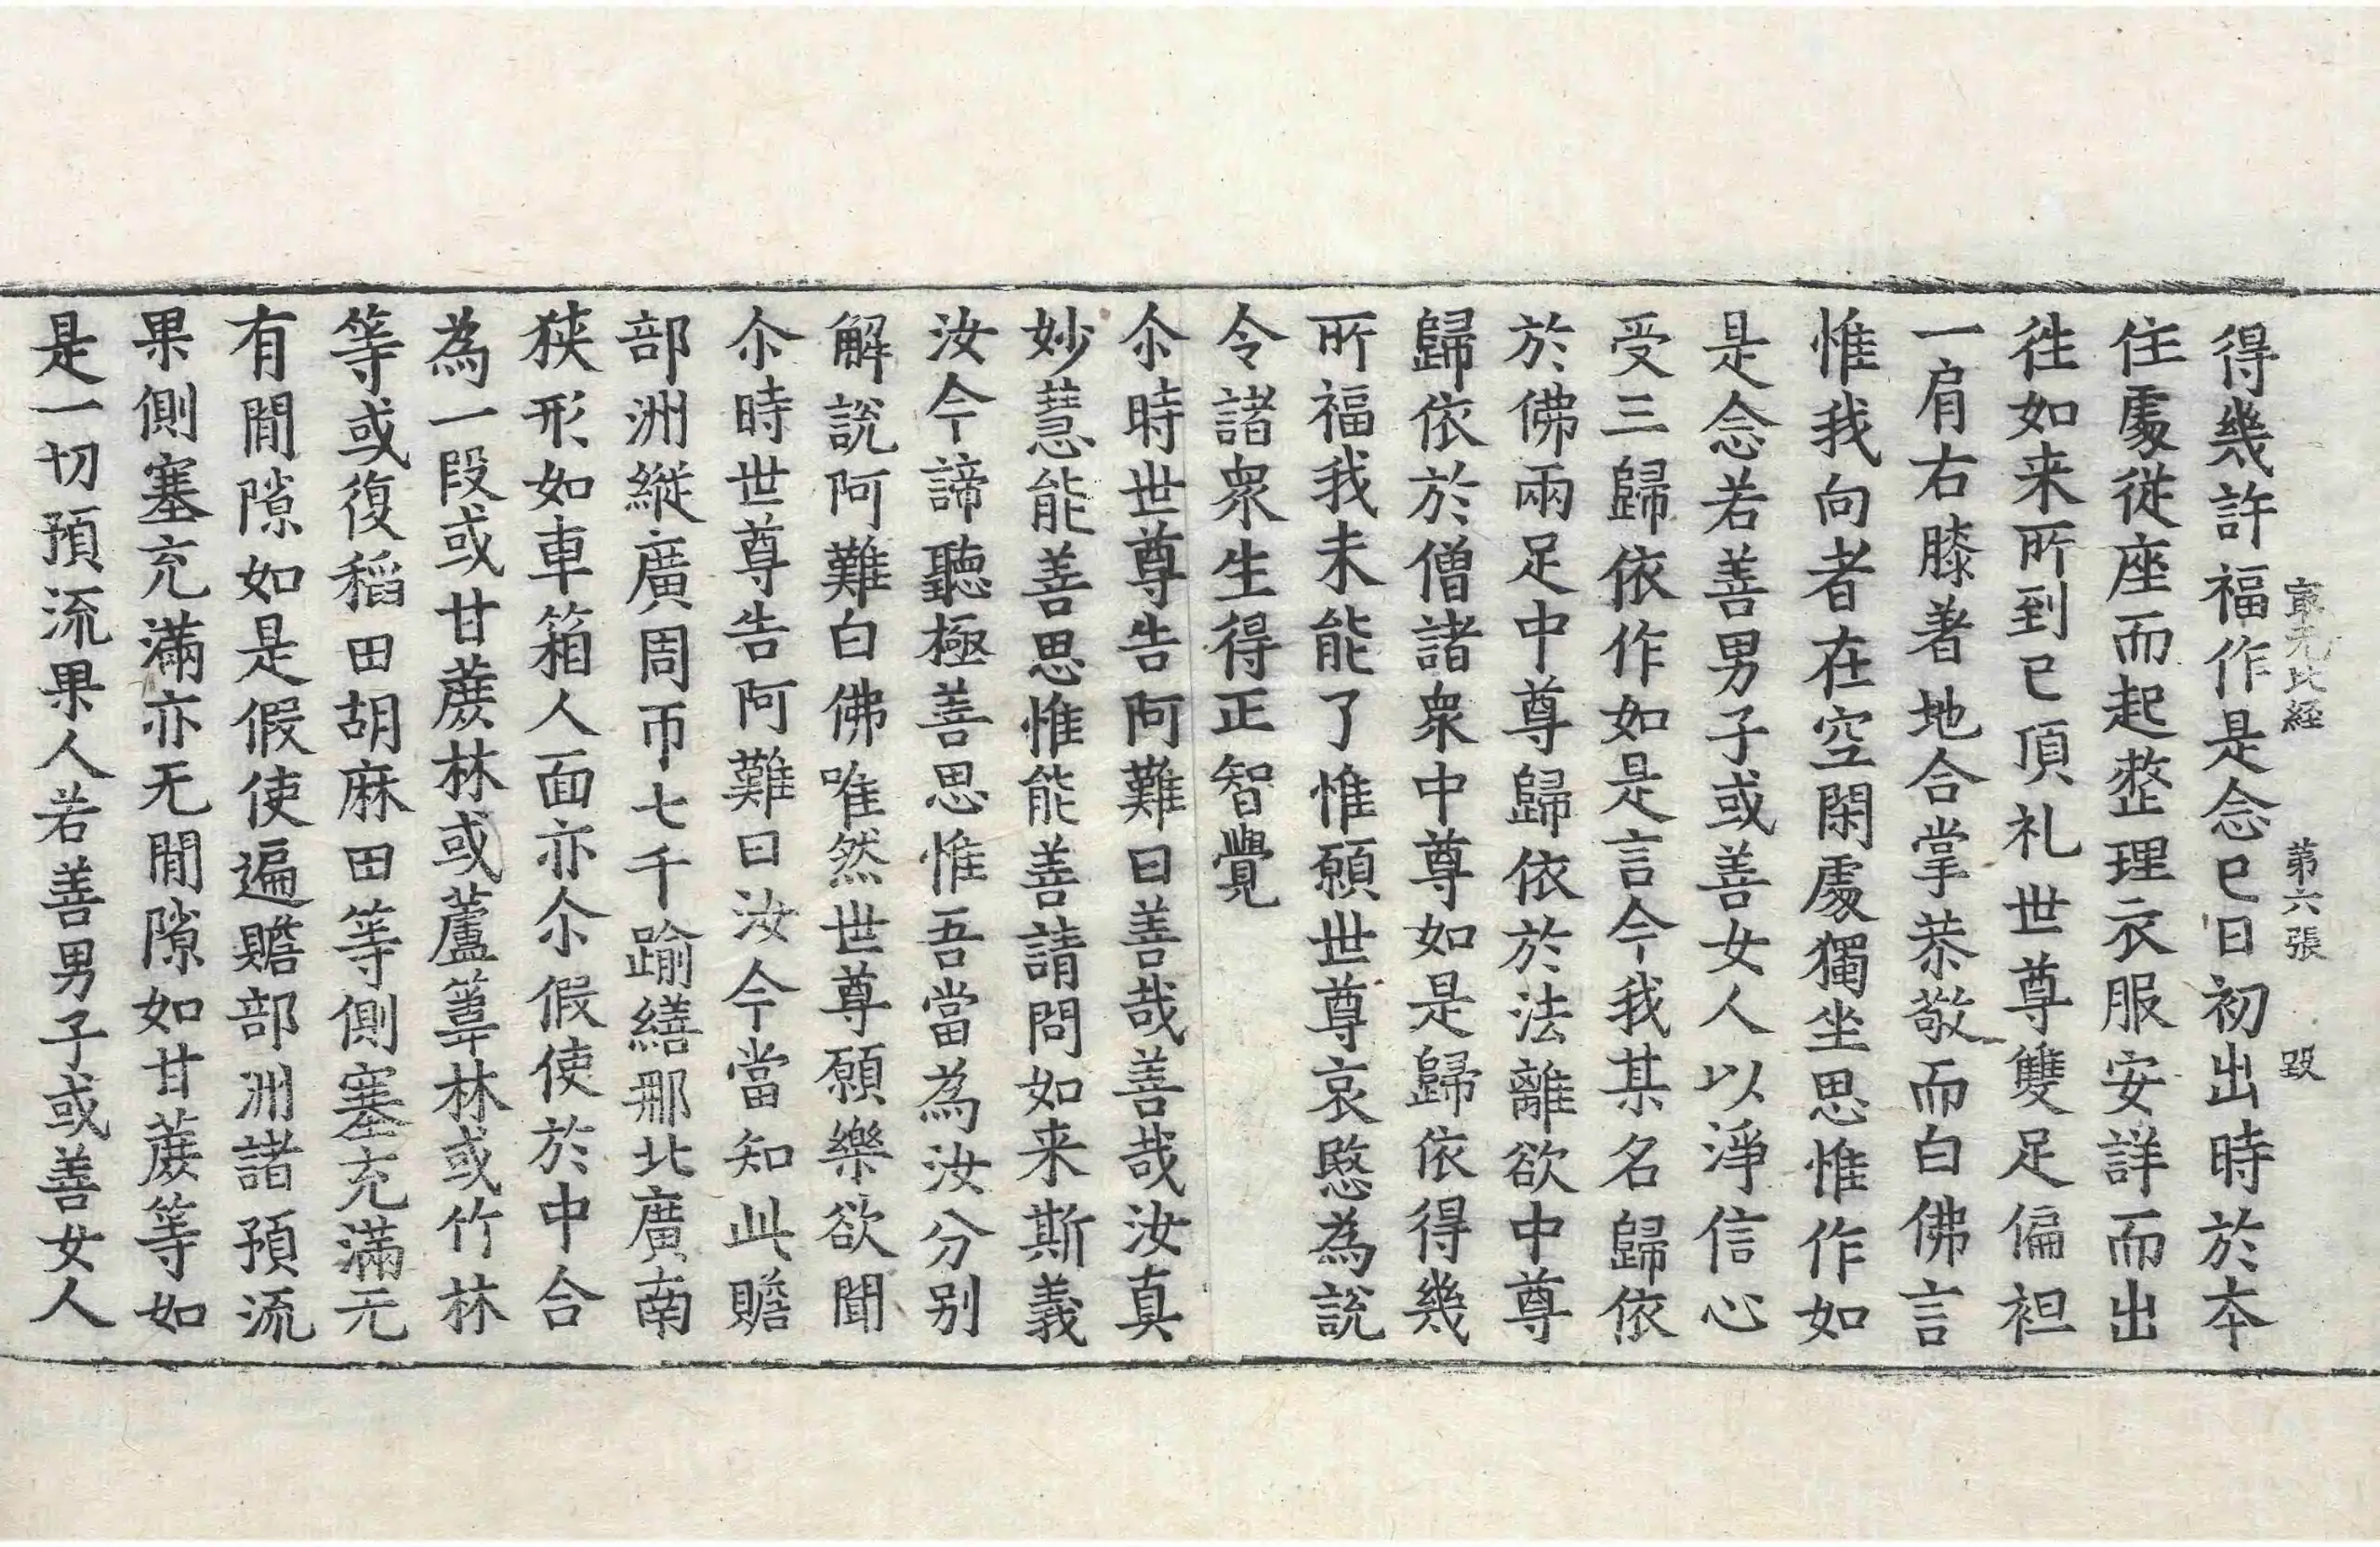 最无比經 第六張 毀
得幾許福作是念已日初出時於本
住處從座而起整理衣服安詳而出
往如来所到已頂礼世尊雙足偏袒
一肩右膝著地合掌恭敬而白佛言
惟我向者在空閑處獨坐思惟作如
是念若善男子或善女人以淨信心
受三歸依作如是言今我某名歸依
於佛兩足中尊歸依於法離欲中尊
歸依於僧諸衆中尊如是歸依得幾
所福我未能了惟願世尊哀愍為說
令諸衆生得正智覺
尒時世尊告阿難曰善哉善哉汝真
妙慧能善思惟能善請問如来斯義
汝今諦聽極善思惟吾當為汝分别
解說阿難白佛唯然世尊願樂欲聞
尒時世尊告阿難曰汝今當知此贍
部洲縱廣周帀七千踰繕那北廣南
狹形如車箱人面亦尒假使於中合
為一段或甘蔗林或蘆葦林或竹林
等或復稻田胡麻田等側塞充滿无
有閒隙如是假使遍贍部洲諸預流
果側塞充滿亦无閒隙如甘蔗等如
是一切預流果人若善男子或善女人